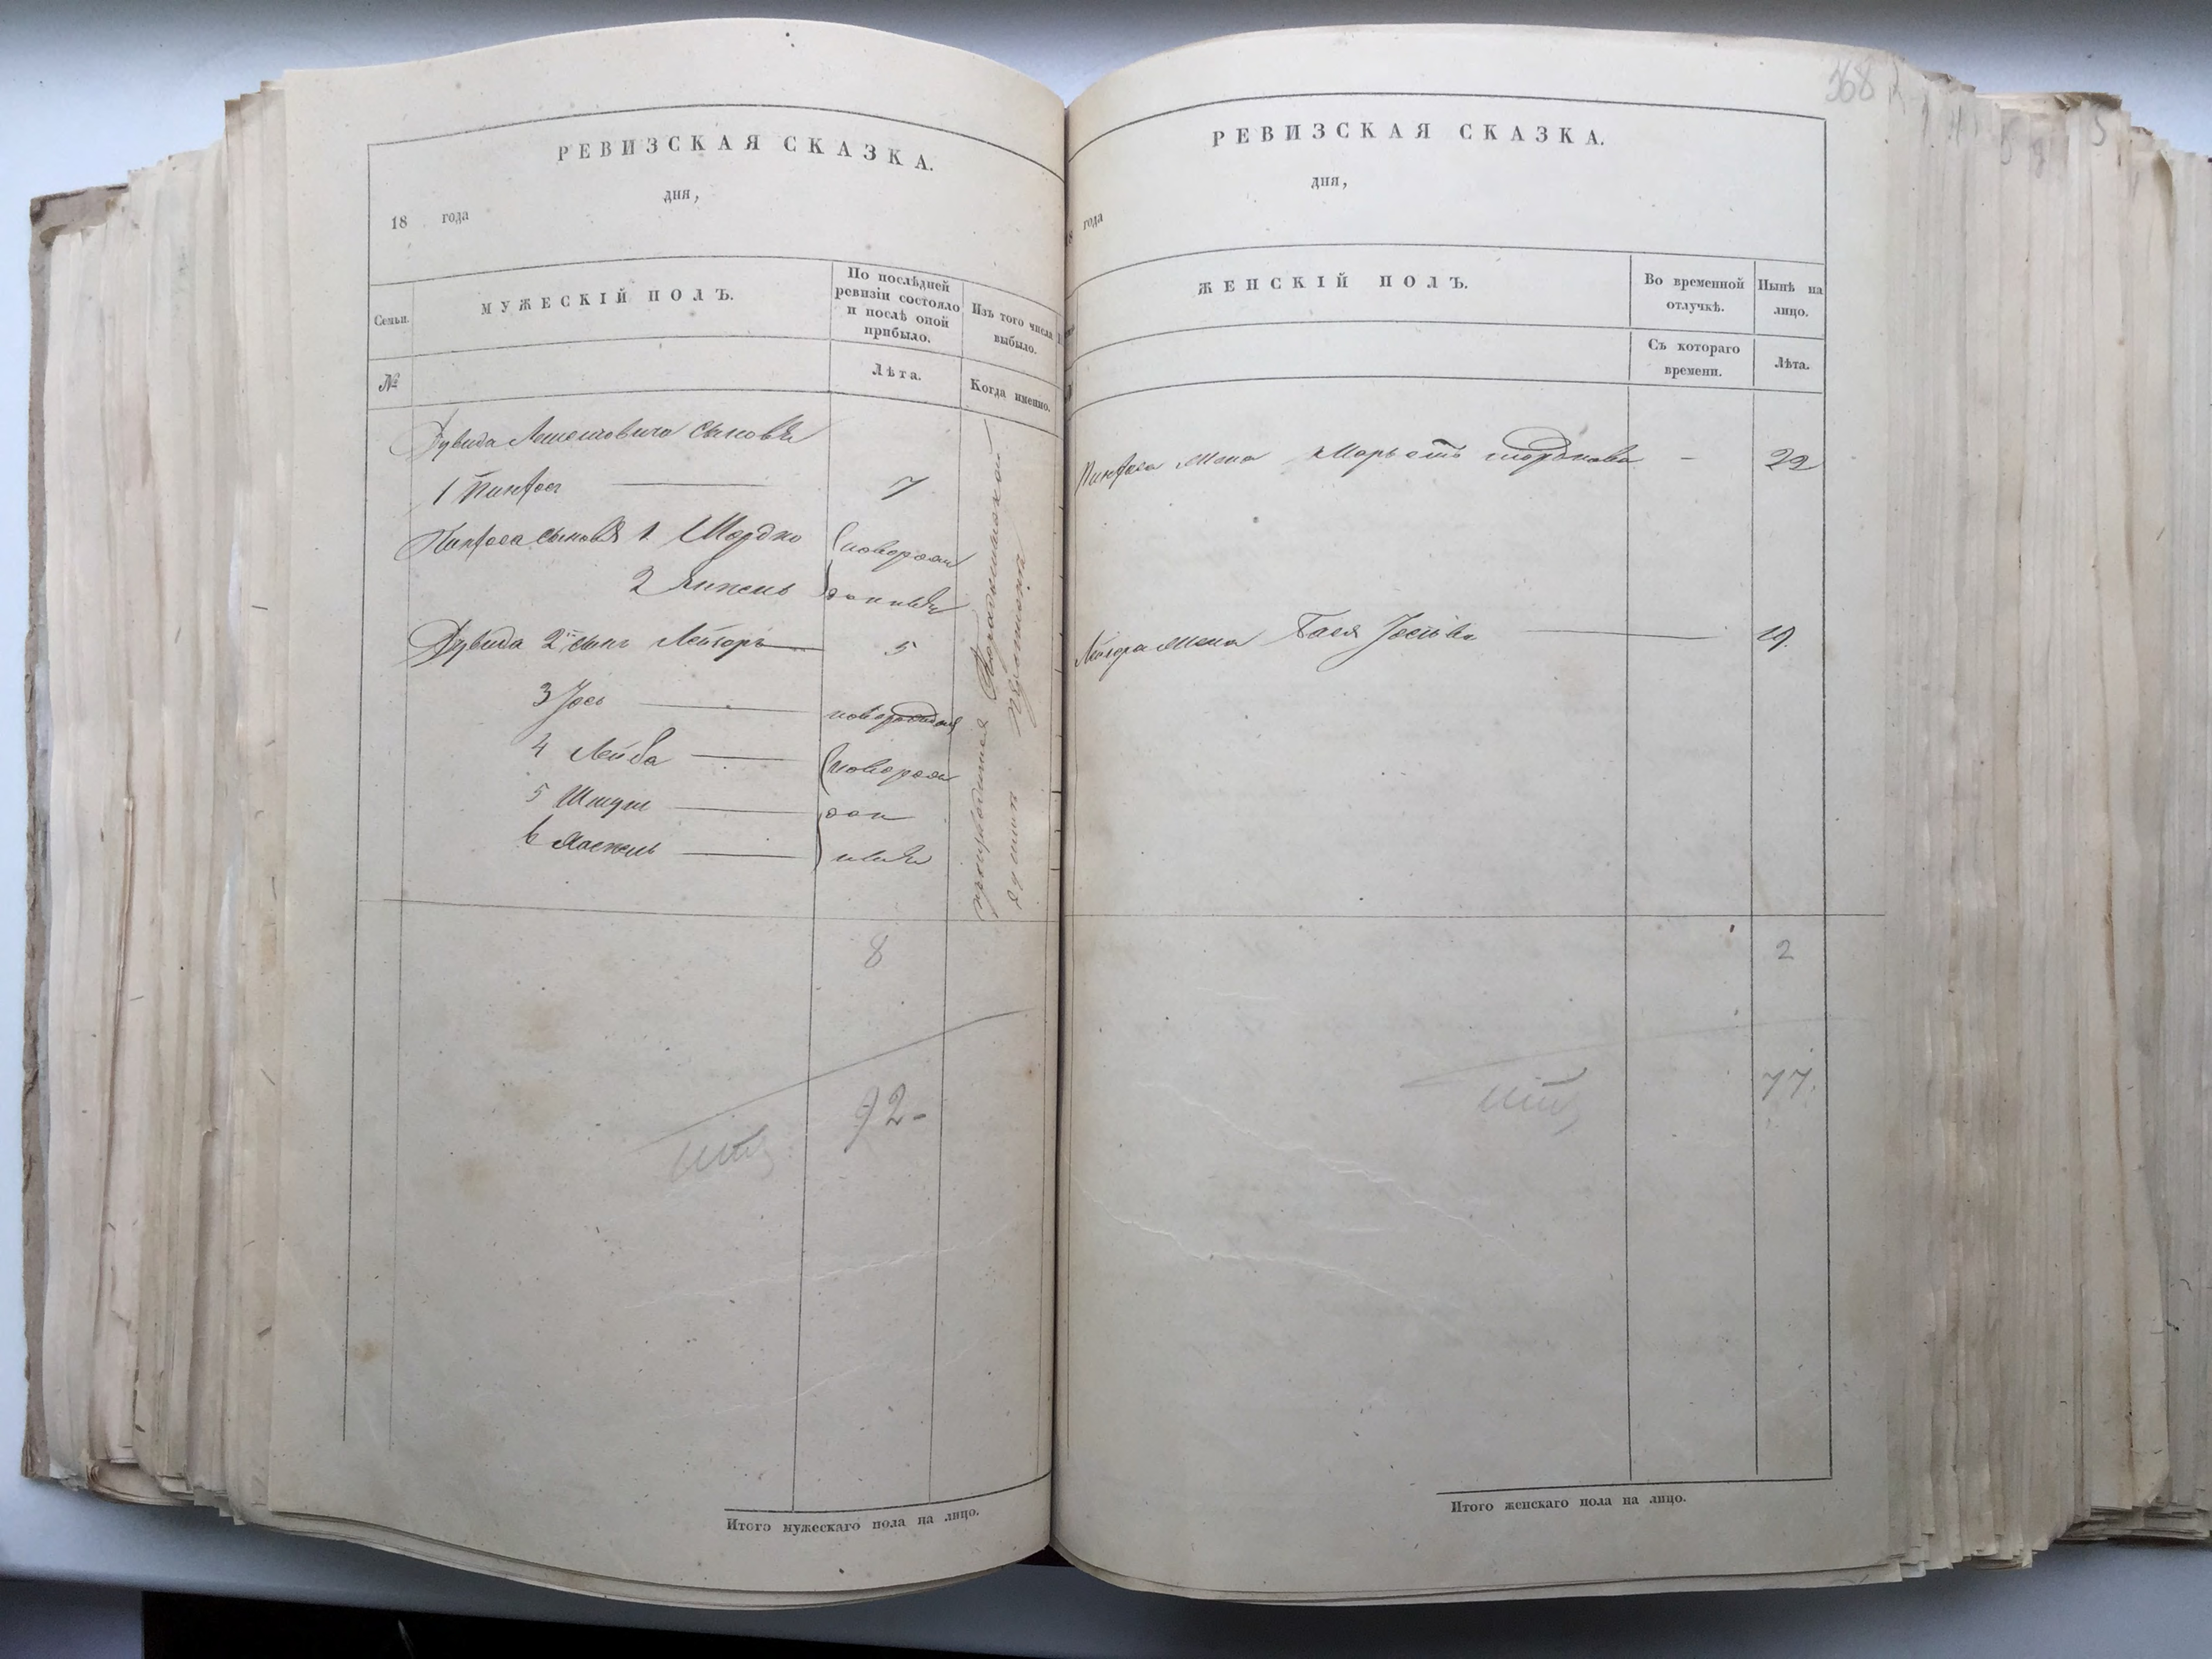 РЕВИЗСКАЯ СКАЗКА.
дня,
18 года
Семьи.
МУЖЕСКІЙ ПОЛЪ.
По послѣдней
ревизіи состояло
и послѣ оной
прибыло.
Изъ того числа
выбыло.
№
Лѣта.
Когда именно.
Дувида сыновья
1 Пинхос 7
Пинхоса сыновья 1. Мордко новорож
2 Янкель денные
Дувида 2й сынъ Лейзоръ 5
3 Іось новорожденный
4 Лейба новорож
5 Шмуль ден
6 Хаскель ные
8
92-
Итого
Итого мужескаго пола на лицо.
368
РЕВИЗСКАЯ СКАЗКА.
дня,
года
ЖЕНСКІЙ ПОЛЪ.
Во временной
отлучкѣ.
Нынѣ на
лицо.
Съ котораго
времени.
Лѣта.
Пинхоса жена 22
Лейзора жена Бася Іосіова 19.
2
77.
Итого
Итого женскаго пола на лицо.